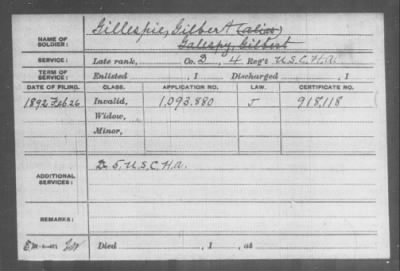 NAME OF SOLDIER: Gillespie, Gilbert (alias)
Galespy, Gilbert
SERVICE: Late rank, Co. D, 4 Reg't U.S.C.H.A.
TERM OF SERVICE: Enlisted , 1 Discharged , 1
DATE OF FILING. CLASS. APPLICATION NO. LAW. CERTIFICATE NO.
1892 Feb 26 Invalid, 1,093,880 J 918,118
Widow,
Minor,
ADDITIONAL SERVICES: D 5, U.S.C.H.A.
REMARKS:
Died , 1 , at